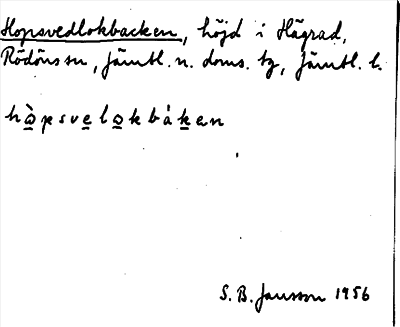 Hopsvedlokbacken, höjd i Hägrad,
Rödöns sn, Jämtl. n. doms. tg, Jämtl. l.
hàpsvelokbákan
S. B. Jansson 1956